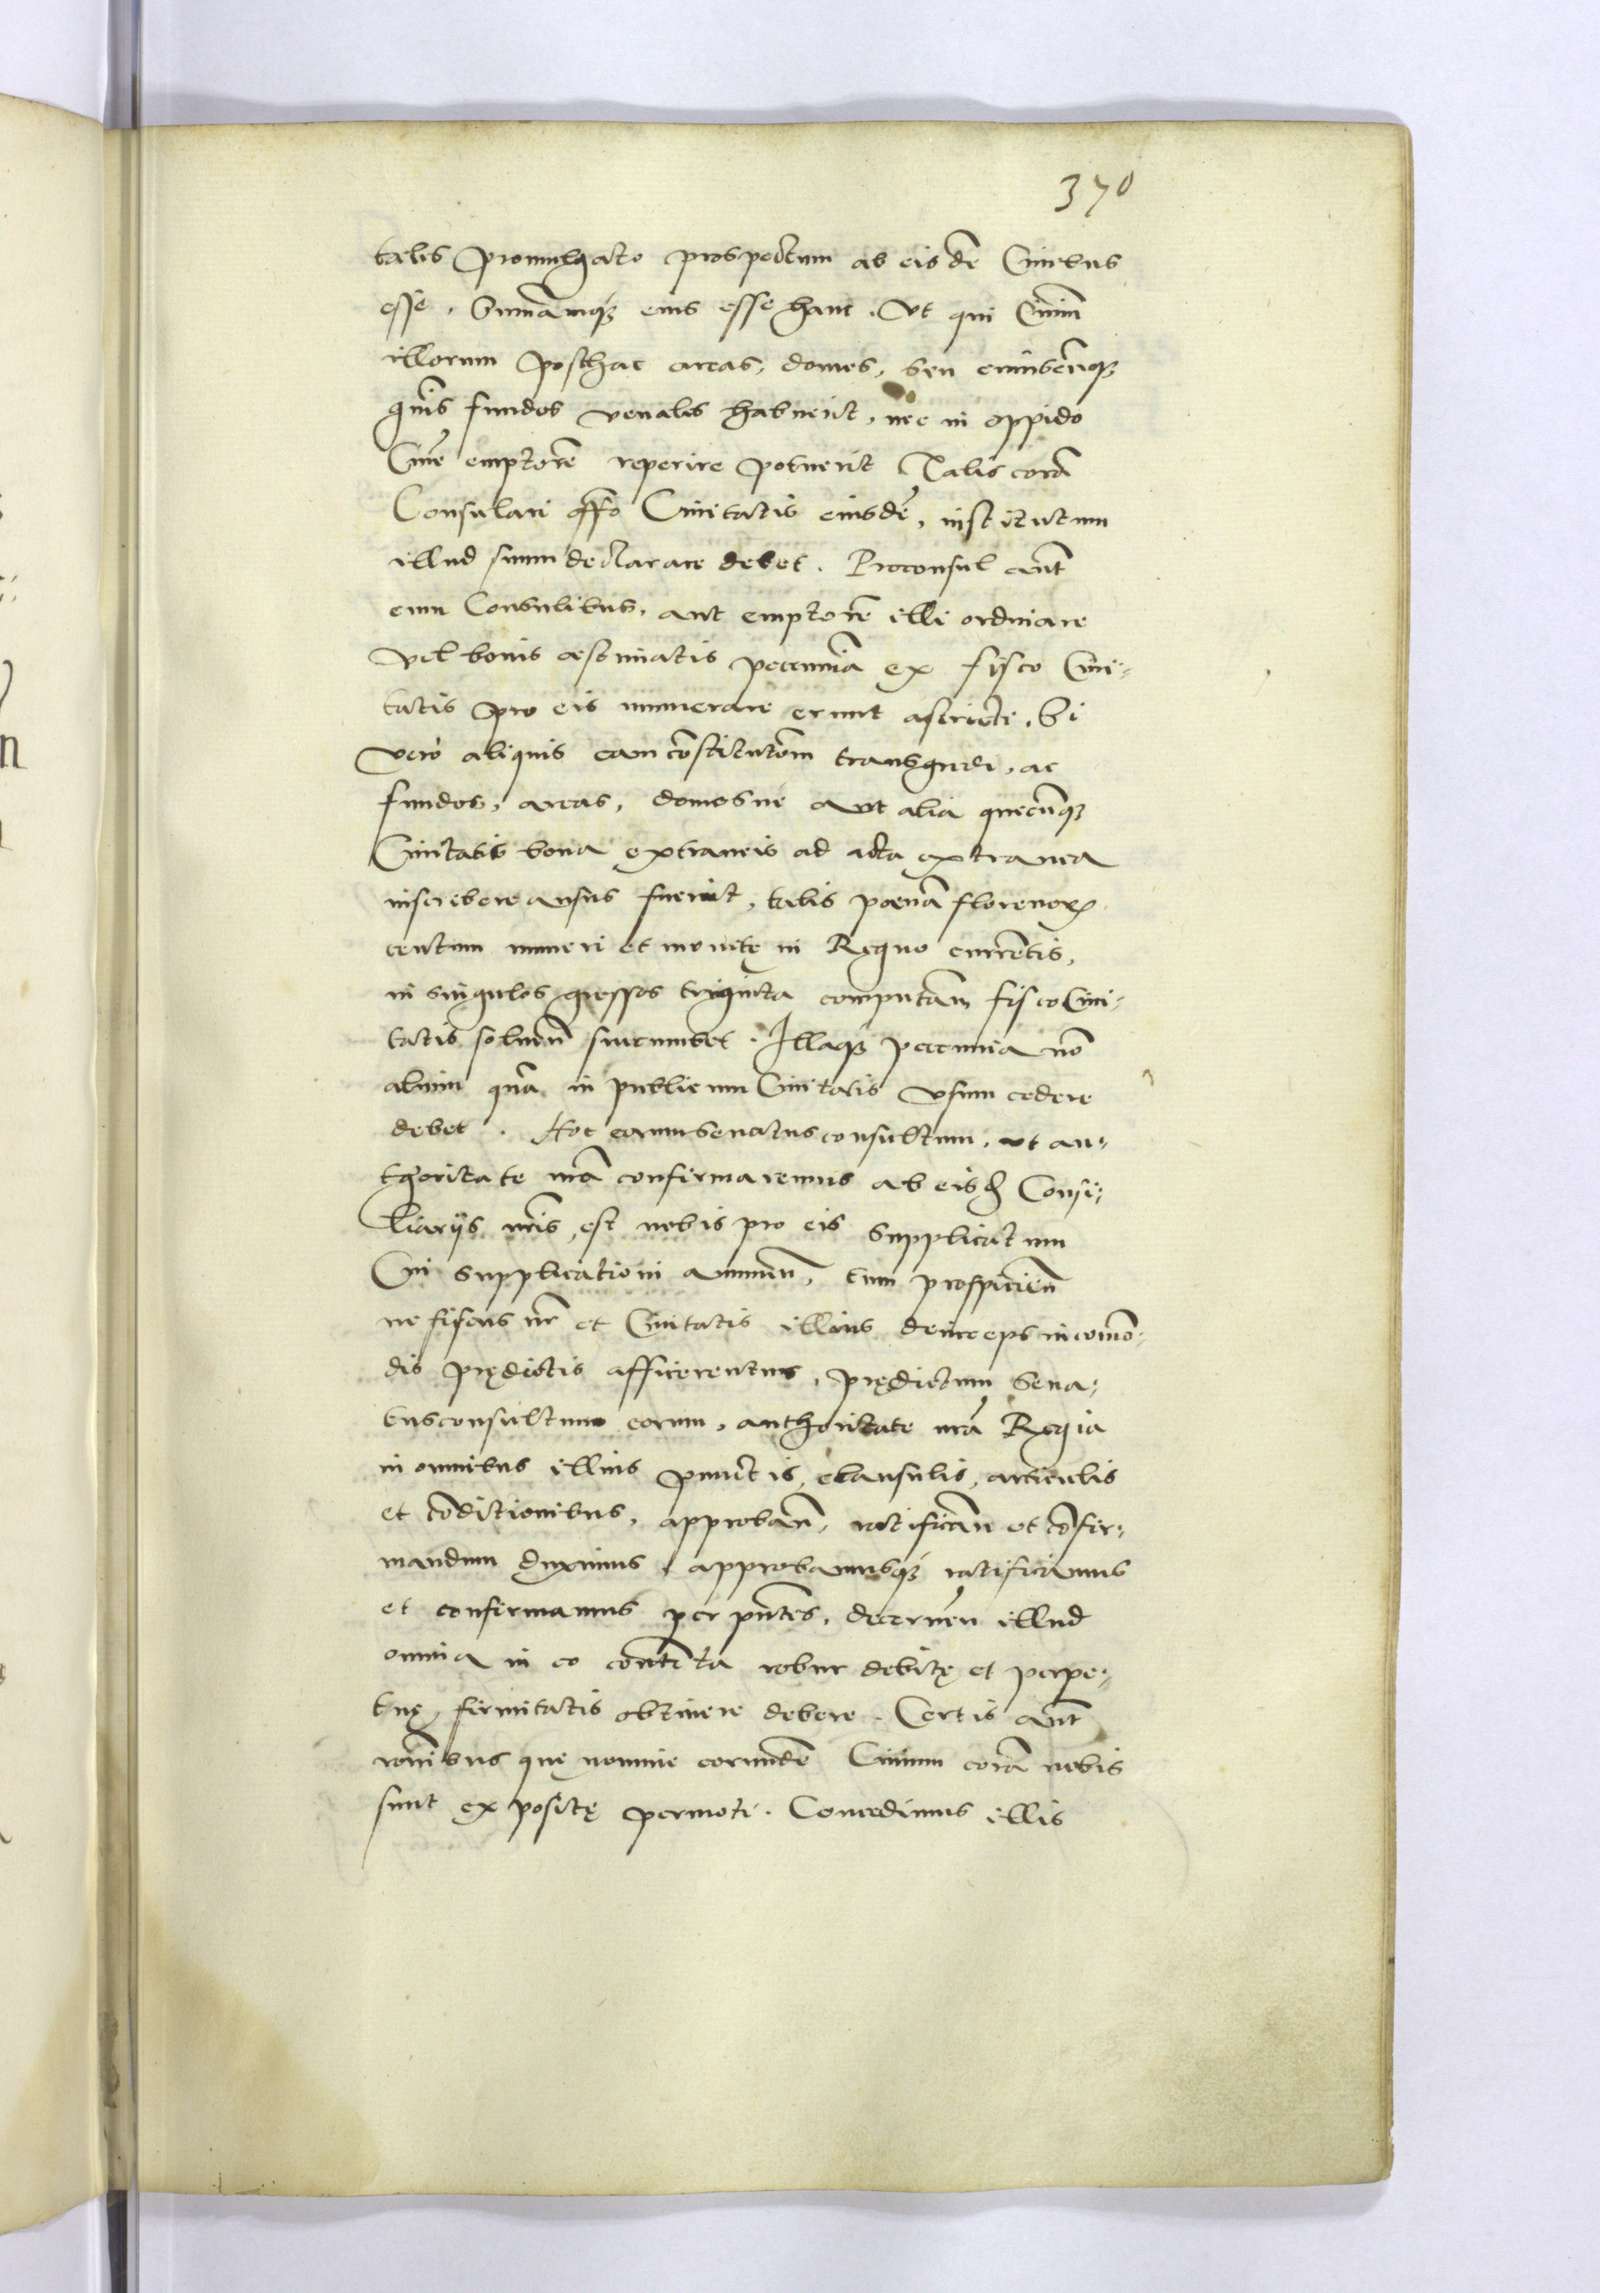 370
talis promulgato prospectum ab eisdē Ciuibus
esse. Sum̄amq́ꝫ eius esse hanc. Vt qui Ciuiū
illorum posthac areas, domos, seu cuiuscūqꝫ
gn̄is fundos venales habuerit, nec in oppido
Ciuē emptorē reperire potuerit Talis corā
Consulari offō Ciuitatis eiusdē, institutum
illud suum declarare debet. Proconsul aūt
cum Consulibus, aut emptorē illi ordinare
vel bonis æstimatis pecuniā ex fisco Ciui-
tatis pro eis numerare erunt astricti. Si
vero aliquis eam cōstitutōm transgredi, ac
fundos, areas, domosue aut alia quecūqꝫ
Ciuitatis bona extraneis ad acta extranea
inscribere ausus fuerit, talis poenā florenoꝝ
centum numeri et monetę in Regno currētis,
in singulos grossos triginta computañ fisco Ciui-
tatis soluen̄ succumbet. Illaqꝫ pecunia nō
alium quā in publicum Ciuitatis vsum cedere
debet. Hoc eorum senatus consultum, vt au-
thoritate nr̄a confirmaremus ab eisd Consi-
liarijs nr̄is, est nobis pro eis supplicatum
Cui supplicationi annuen̄, tum prospicien̄
ne fiscus nr̄ et Ciuitatis illius deinceps incōmo-
dis prędictis afficerentur, prędictum Sena-
tusconsultum eorum, authoritate nr̄a Regia
in omnibus illius punctis, clausulis, articulis
et cōditionibus, approban̄, ratifican̄ et cōfir-
mandum duximus, approbamusq́ꝫ ratificamus
et confirmamus per pn̄tes, decernen̄ illud
omnia in eo contēta robur debitę et perpe-
tuę firmitatis obtinere debere. Certis aūt
rōnibus quę nomine eorundē Ciuium corā nobis
sunt expositę permoti. Concedimus illis